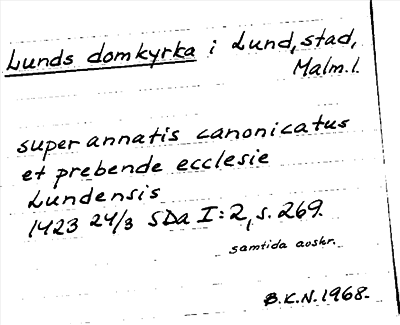 Lunds domkyrka i Lund, stad,
Malm.l.
super annatis canonicatus
et prebende ecclesie
Lundensis
1423 24/3 SDa I:2, s. 269.
samtida avskr.
B.K.N. 1968.